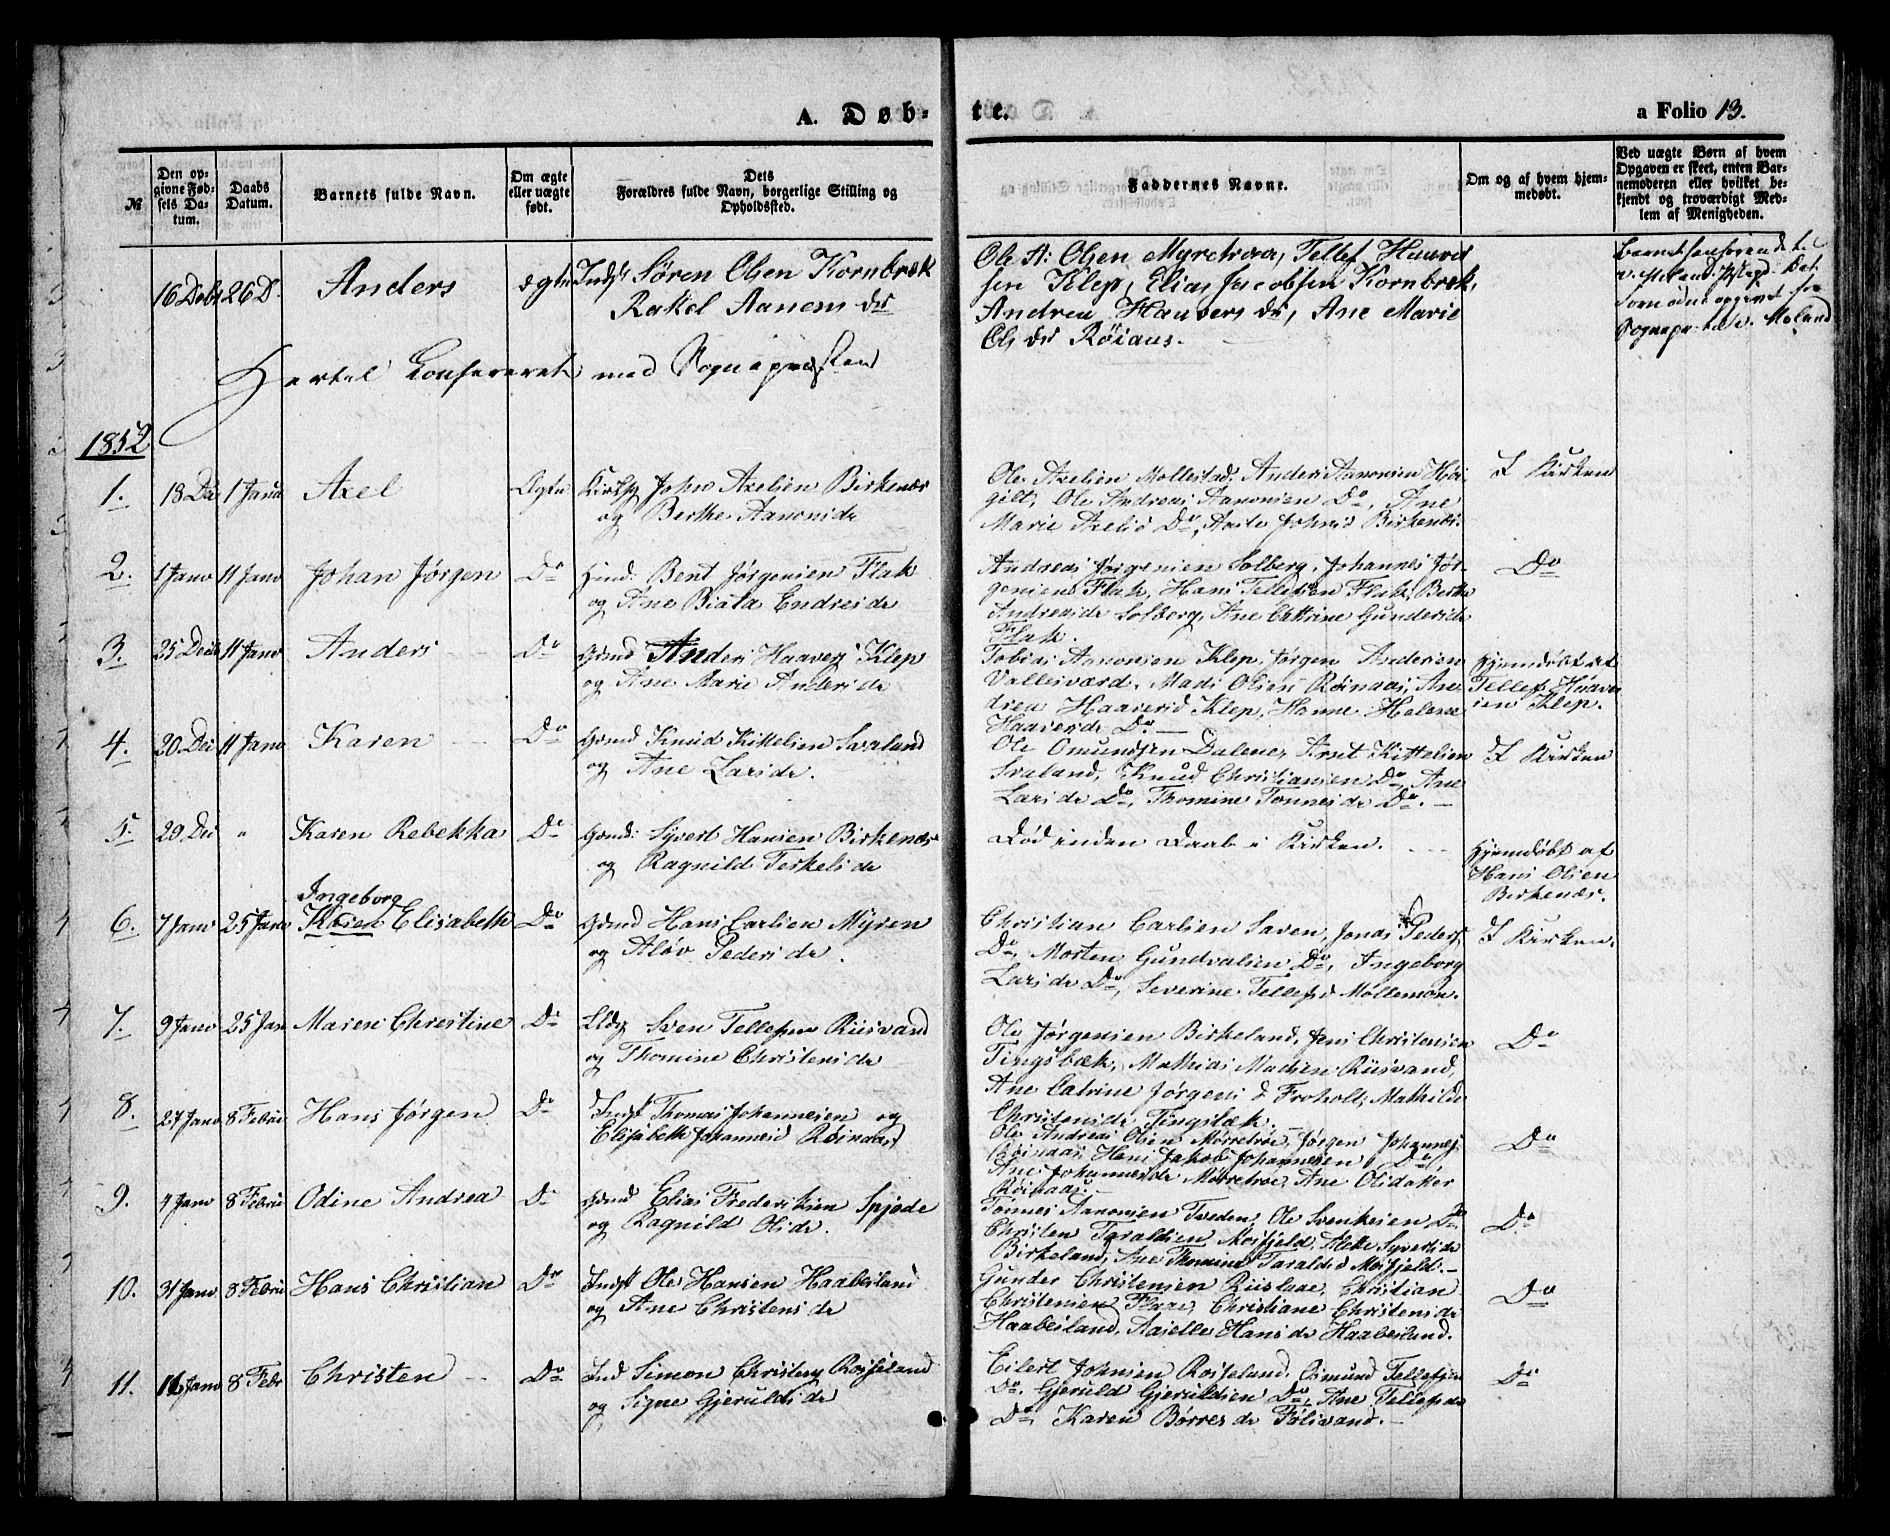 A. Døb-
te.
a Folio 13.
№
Den opgivne Fødsels Datum.
Daabs Datum.
Barnets fulde Navn.
Om ægte eller uægte født.
Dets Forældres fulde Navn, borgerlige Stilling og Opholdssted.
Faddernes Navne.
Om og af hvem hjemmedøbt.
Ved uægte Børn af hvem Opgaven er skeet, enten Barnemoderen eller hvilket bekjendt og troværdigt Medlem af Menigheden.
16 Debr 26 D. Anders ægte Indst Søren Olsen Kornbræk
Rakel Aanens dr
Ole A: Olsen Myretraa, Tellef Haavor
sen Klep, Elias Jacobsen Kornbræk,
Andrea Haavors dr, Ane Marie
Ols dr Röiaas.
med Sognepræsten
1852
1. 18 De 1 Janu Axel Ægte John Axelsen Birkenæs
og Berthe Aanonsdr
Ole Axelsen Mollestad, Anders Aanonsen Hør
gilt, Ole Andreas Aanonsen Do, Ane
Marie Axelsd Do, Aaste Johnsd Birkenæs.
I Kirken
2. 1 Janv 11 Janv Johan Jørgen Do Bent Jørgensen Flak
og Ane Beata Endresdr
Andreas Jørgensen Solberg, Johannes Jør-
gensen Flak, Hans Tellefsen Flak, Berthe
Andreasdr Solberg, Ane Cathrine Gundersdr
Flak.
Do
3. 25 Decb 11 Janv Anders Do Grmd Anders Haavors Klep
og Ane Marie Andersdr
Tobias Aanonsen Klep, Jørgen Andersen
Vallesværd, Mads Olsen Røinaas, An-
drea Haavorsd Klep, Hanne Helene
Haavorsdr Do.
Hjemdøbt af
Tellef Haavor
sen Klep.
4. 30 Dec 11 Janv Karen Do Grmd Knud Kittelsen Svaland
og Ane Larsdr.
Ole Omundsen Dalene, Arnt Kittelsen
Svaland, Knud Christiansen Do, Ane
Larsdr Do, Thomine Tønnesdr Do.
I Kirken
5. 29 Dec " Karen Rebekka Do Grmd: Syvert Hansen Birkenæs
og Ragnild Terkelsdr
Død inden Daab i Kirken.
Hjemdøbt af
Hans Olsen
Birkenæs.
Ingeborg
6. 7 Janv 25 Janv Karen Elisabeth Do Grmd Hans Carlsen Myren
og Aløv Pedersdr.
Christian Carlsen Saven, Jonas Peders
Do, Morten Gundvalsen Do, Ingeborg
Larsdr Do, Severine Tellefsd Mollemon.
I Kirken.
7. 9 Janv 25 Jan Maren Christine Do Sven Tellefsen Riisvand
og Thomine Christensdr
Ole Jørgensen Birkeland, Jens Christensen
Tingsbæk, Mathias Madsen Riisvand,
Ane Catrine Jørgens d Froholt, Mathilde
Christensdr Tingsbæk.
Do
8. 27 Janv 8 Febru Hans Jørgen Do Indst Thomas Johannesen og
Elisabeth Johannesd Røinaas
Ole Andreas Olsen Mørretroe, Jørgen Johannes
Røinaas, Hans Jakob Johannesen Do,
Ane Johannesdr Mørretroe, Ane Olsd
Røinaas.
Do
9. 4 Janv 8 Febru Odine Andrea Do Grmd Elias Frederiksen Spjøde
og Ragnild Olsdr.
Tønnes Aanonsen Tveden, Ole Svenksen Do
Christen Taraldsen Mosfjeld, Mette Syversdr
Birkeland, Ane Thomine Taraldsd Mosfjeld.
Do
10. 31 Janv 8 Febru Hans Christian Do Indst Ole Hansen Haabesland
og Ane Christensdr
Gunder Christensen Riislaae, Christian
Christensen Flaae, Christiane Christensdr
Haabesland, Aasille Hansdr Haabesland.
Do
11. 16 Janv 8 Febr Christen Do Ind Simon Christens Rosseland
og Signe Gjeruldsdr
Eilert Johnsen Rosseland, Osmund Tellefsen
Do, Gjeruld Gjeruldsen Do, Ane Tellefsdr
Do, Karen Børresdr Føllvand.
Do